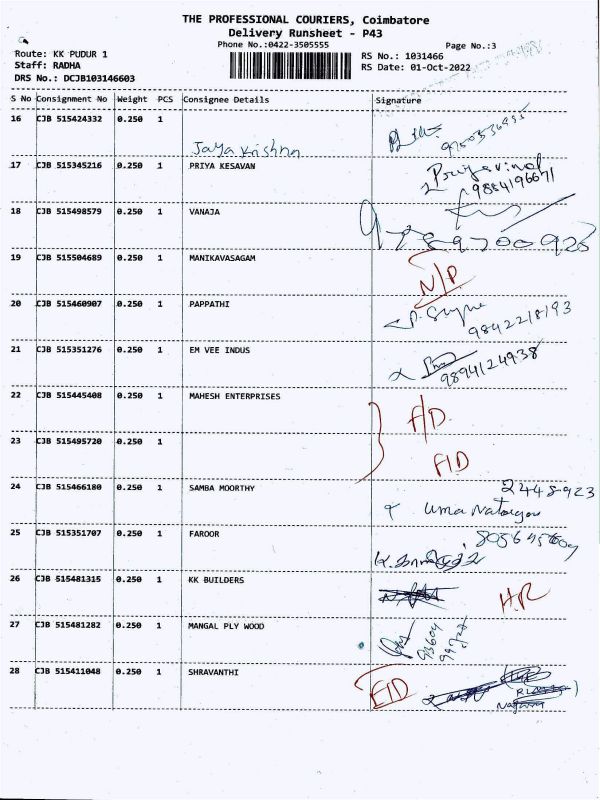 THE PROFESSIONAL COURIERS, Coimbatore
Delivery Runsheet - P43
Phone No.:0422-3505555
Page No.:3
Route: KK PUDUR 1
RS No.: 1031466
Staff: RADHA
RS Date: 01-Oct-2022
DRS No.: DCJB103146603
S No Consignment No Weight PCS Consignee Details Signature
16 CJB 515424332 0.250 1
Jaya Krishna
17 CJB 515345216 0.250 1 PRIYA KESAVAN
Priyavinod
9884196671
18 CJB 515498579 0.250 1 VANAJA
9789700925
19 CJB 515504689 0.250 1 MANIKAVASAGAM
N/P
20 CJB 515460907 0.250 1 PAPPATHI
9842218193
21 CJB 515351276 0.250 1 EM VEE INDUS
9894124938
22 CJB 515445408 0.250 1 MAHESH ENTERPRISES
F/D
23 CJB 515495720 0.250 1
F/D
24 CJB 515466180 0.250 1 SAMBA MOORTHY
2448923
Uma
25 CJB 515351707 0.250 1 FAROOR
26 CJB 515481315 0.250 1 KK BUILDERS
H.R
27 CJB 515481282 0.250 1 MANGAL PLY WOOD
28 CJB 515411048 0.250 1 SHRAVANTHI
F/D